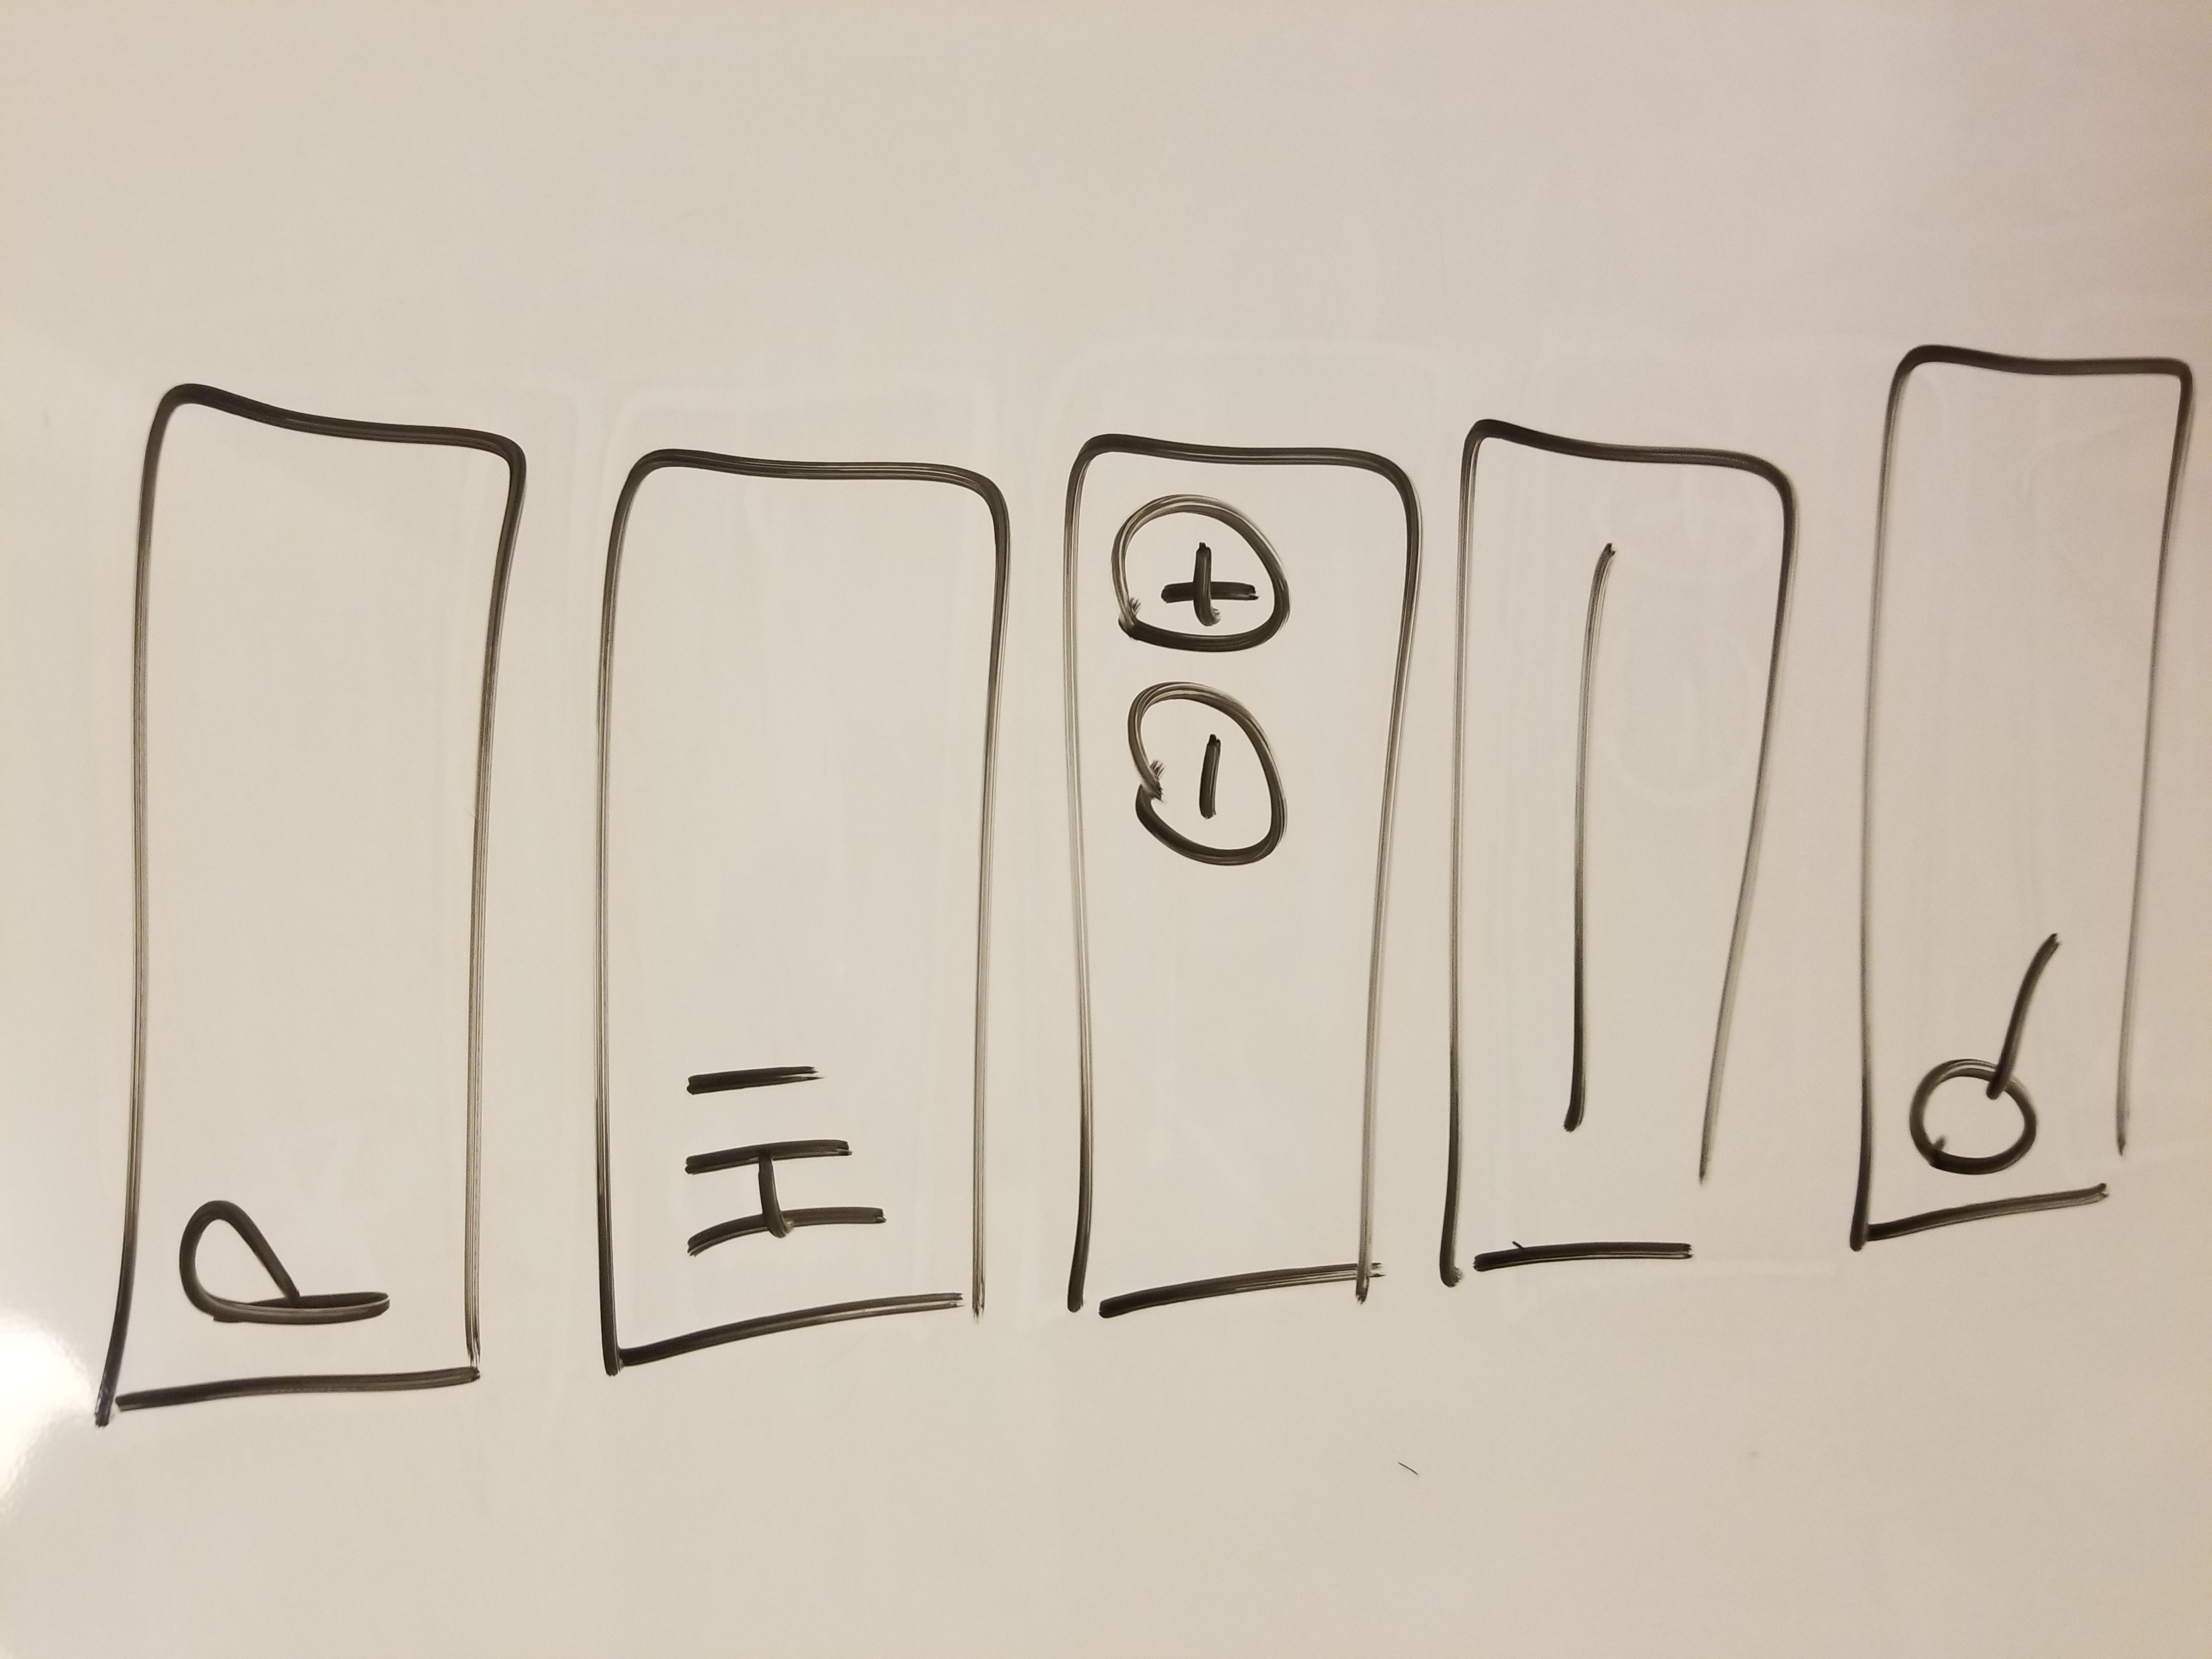 P
HI
- +
Q